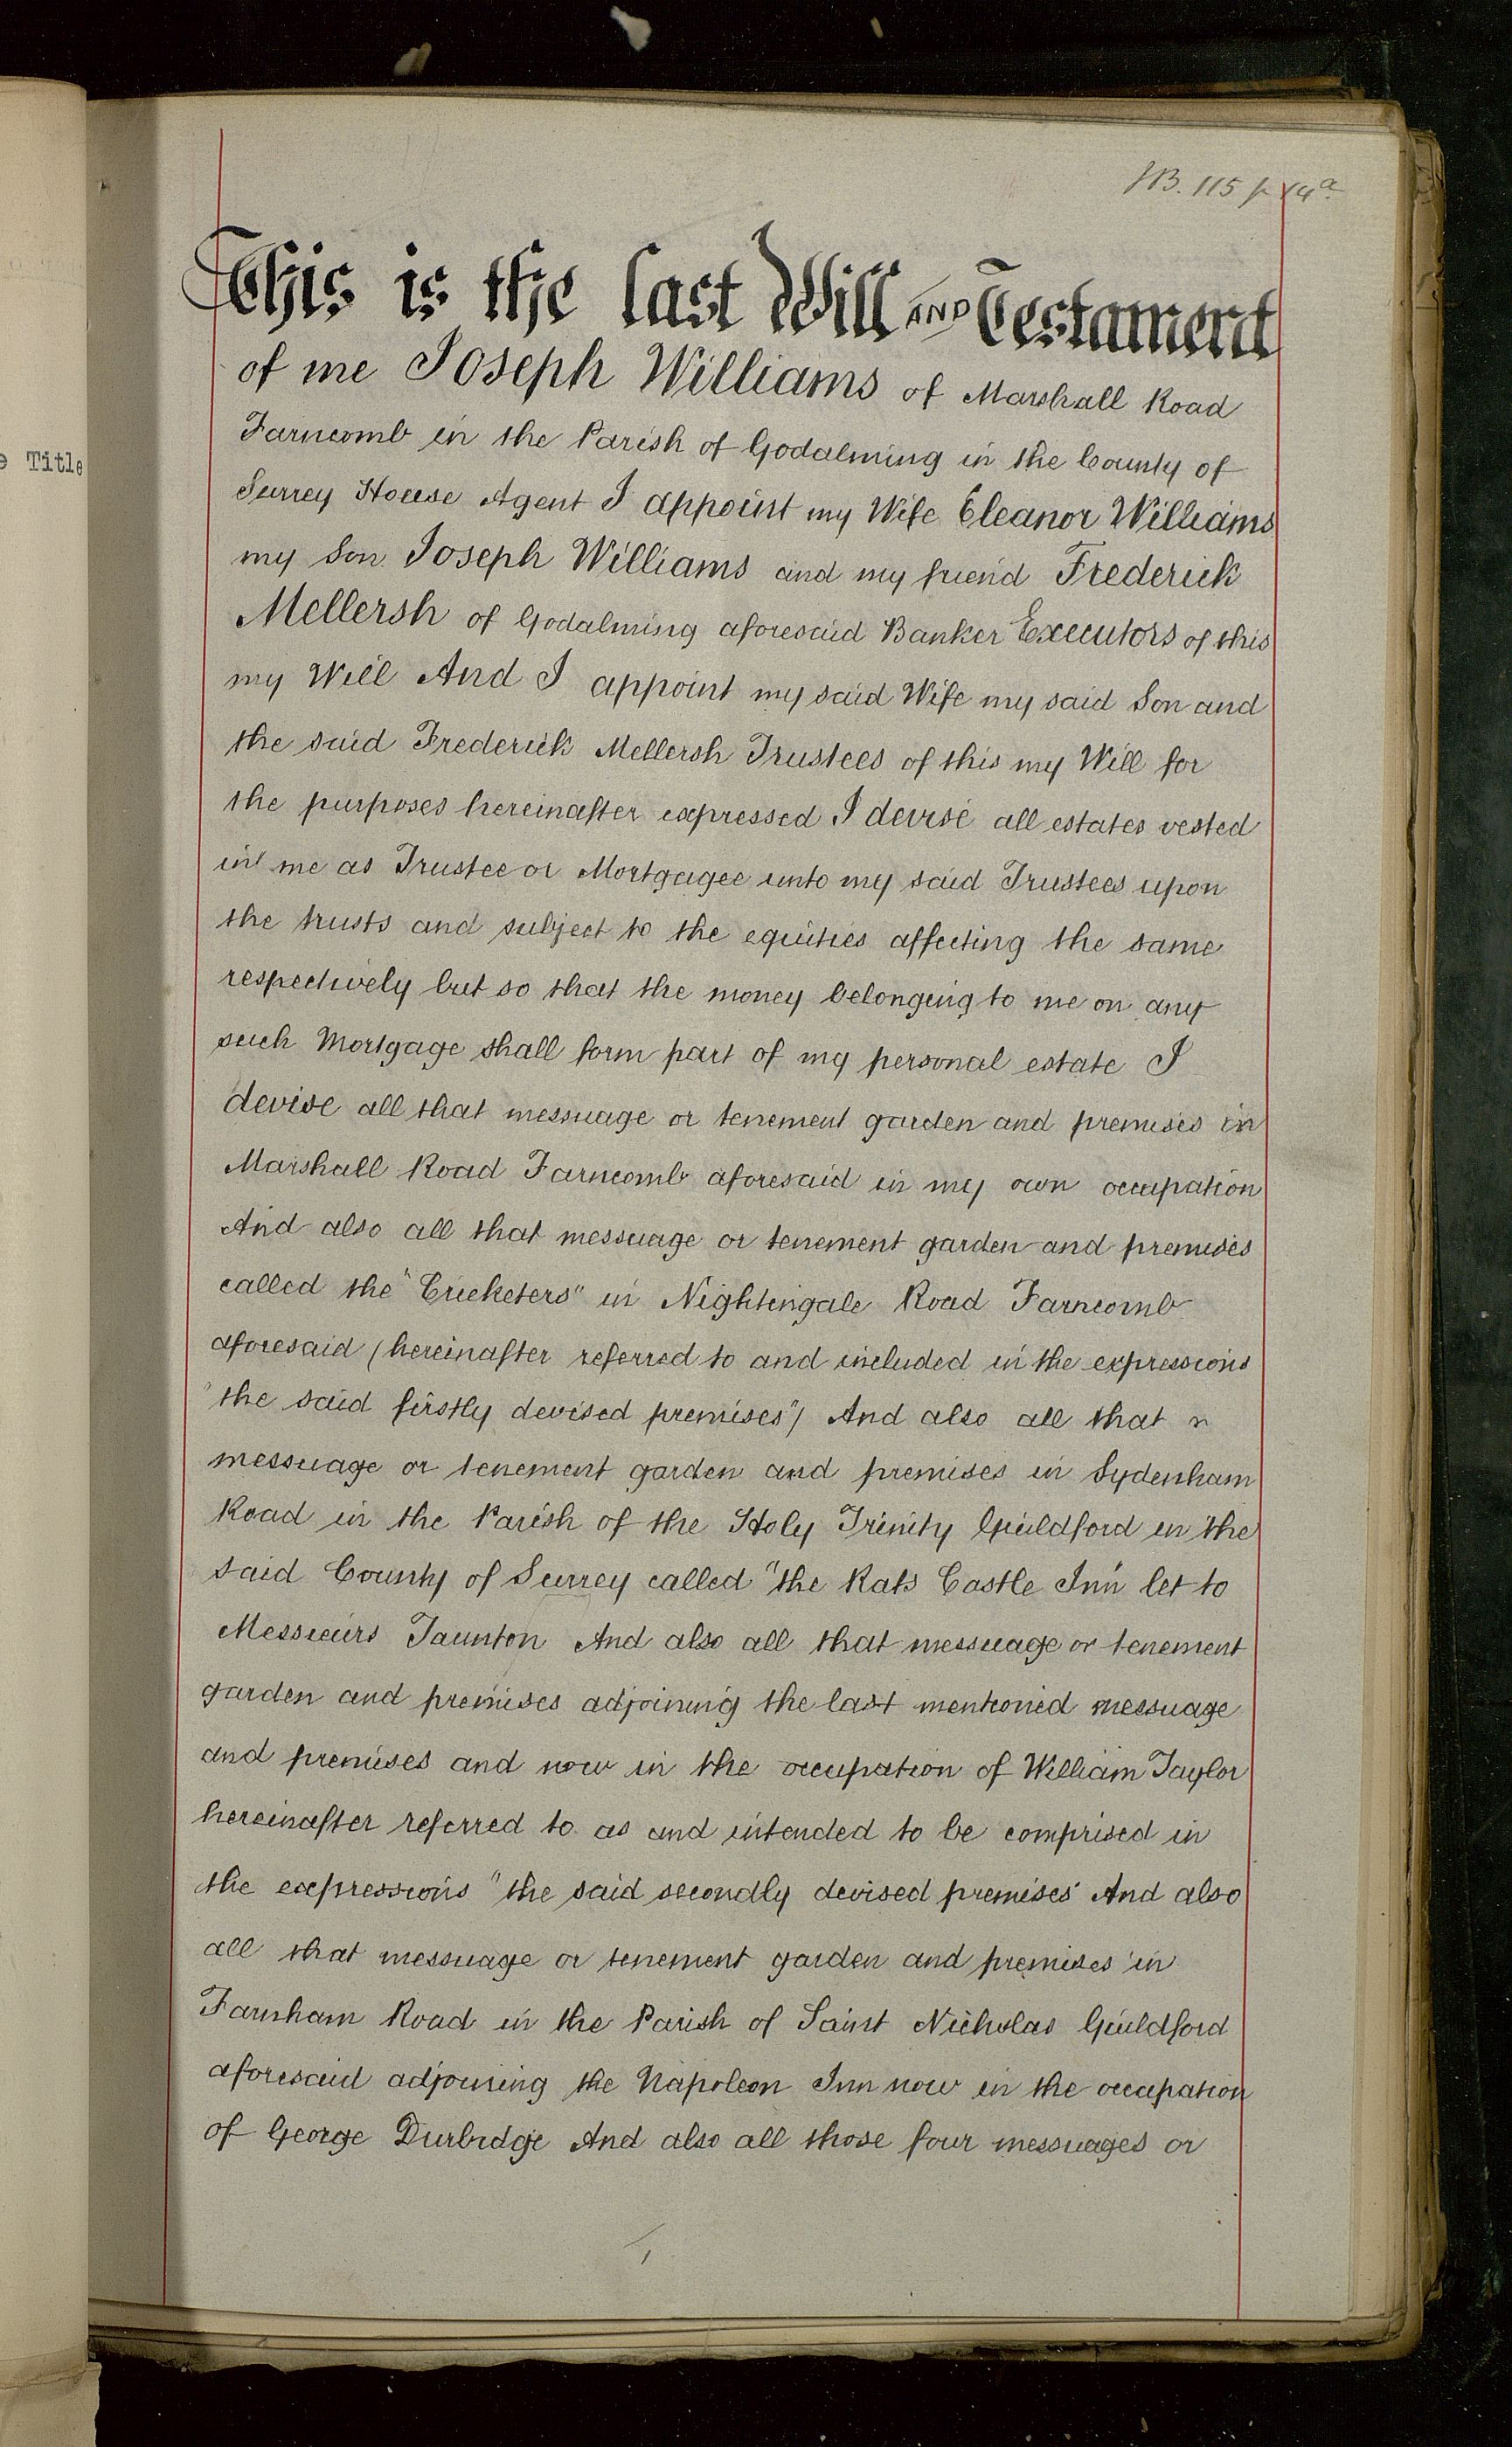 e Title
This is the last Will AND Testament
of me Joseph Williams of Marshall Road
Farncomb in the Parish of Godalming in the County of
Surrey House Agent I appoint my Wife Eleanor Williams
my Son Joseph Williams and my friend Frederick
Mellersh of Godalming aforesaid Banker Executors of this
my Will And I appoint my said Wife my said Son and
the said Frederick Mellersh Trustees of this my Will for
the purposes hereinafter expressed I devise all estates vested
in me as Trustee or Mortgagee unto my said Trustees upon
the trusts and subject to the equities affecting the same
respectively but so that the money belonging to me on any
such Mortgage shall form part of my personal estate I
devise all that messuage or tenement garden and premises in
Marshall Road Farncomb aforesaid in my own occupation
And also all that messuage or tenement garden and premises
called the "Cricketers" in Nightingale Road Farncomb
aforesaid (hereinafter referred to and included in the expressions
"the said firstly devised premises") And also all that
messuage or tenement garden and premises in Sydenham
Road in the Parish of the Holy Trinity Guildford in the
said County of Surrey called "the Rats Castle Inn" let to
Messieurs Taunton And also all that messuage or tenement
garden and premises adjoining the last mentioned messuage
and premises and now in the occupation of William Taylor
hereinafter referred to as and intended to be comprised in
the expressions "the said secondly devised premises" And also
all that messuage or tenement garden and premises in
Farnham Road in the Parish of Saint Nicholas Guildford
aforesaid adjoining the Napoleon Inn now in the occupation
of George Durbidge And also all those four messuages or